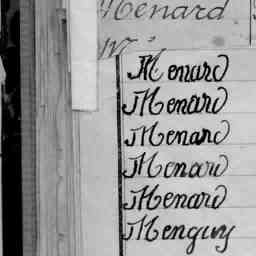 Menard
Menard
Menard
Menard
Menard
Menard
Menguy